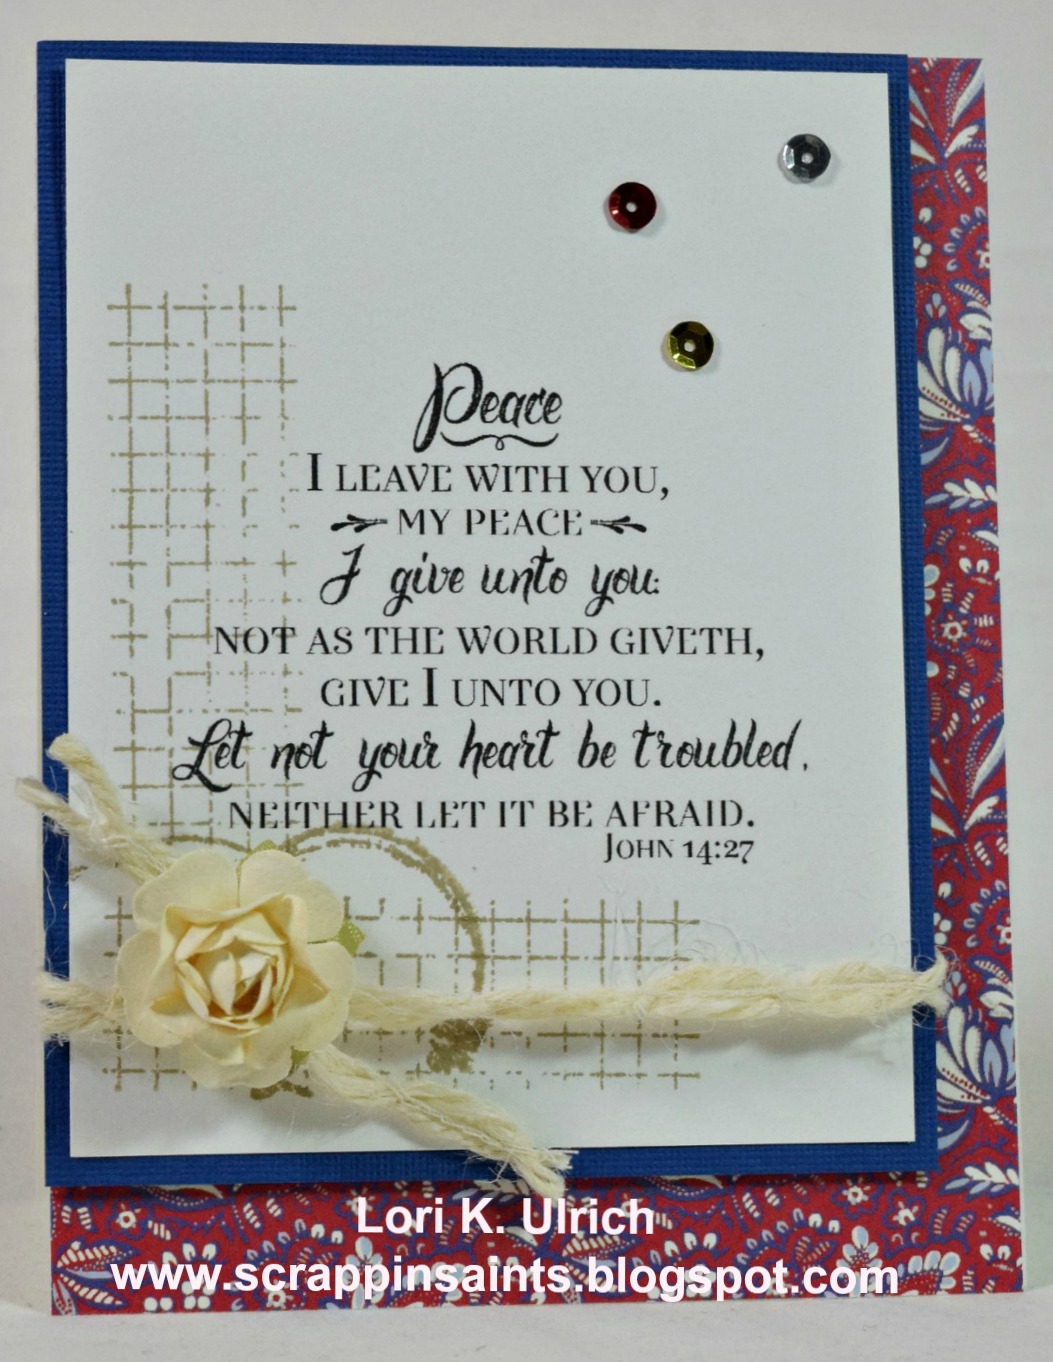 Peace
I LEAVE WITH YOU,
MY PEACE
I give unto you:
NOT AS THE WORLD GIVETH,
GIVE I UNTO YOU.
Let not your heart be troubled,
NEITHER LET IT BE AFRAID.
JOHN 14:27
Lori K. Ulrich
www.scrappinsaints.blogspot.com